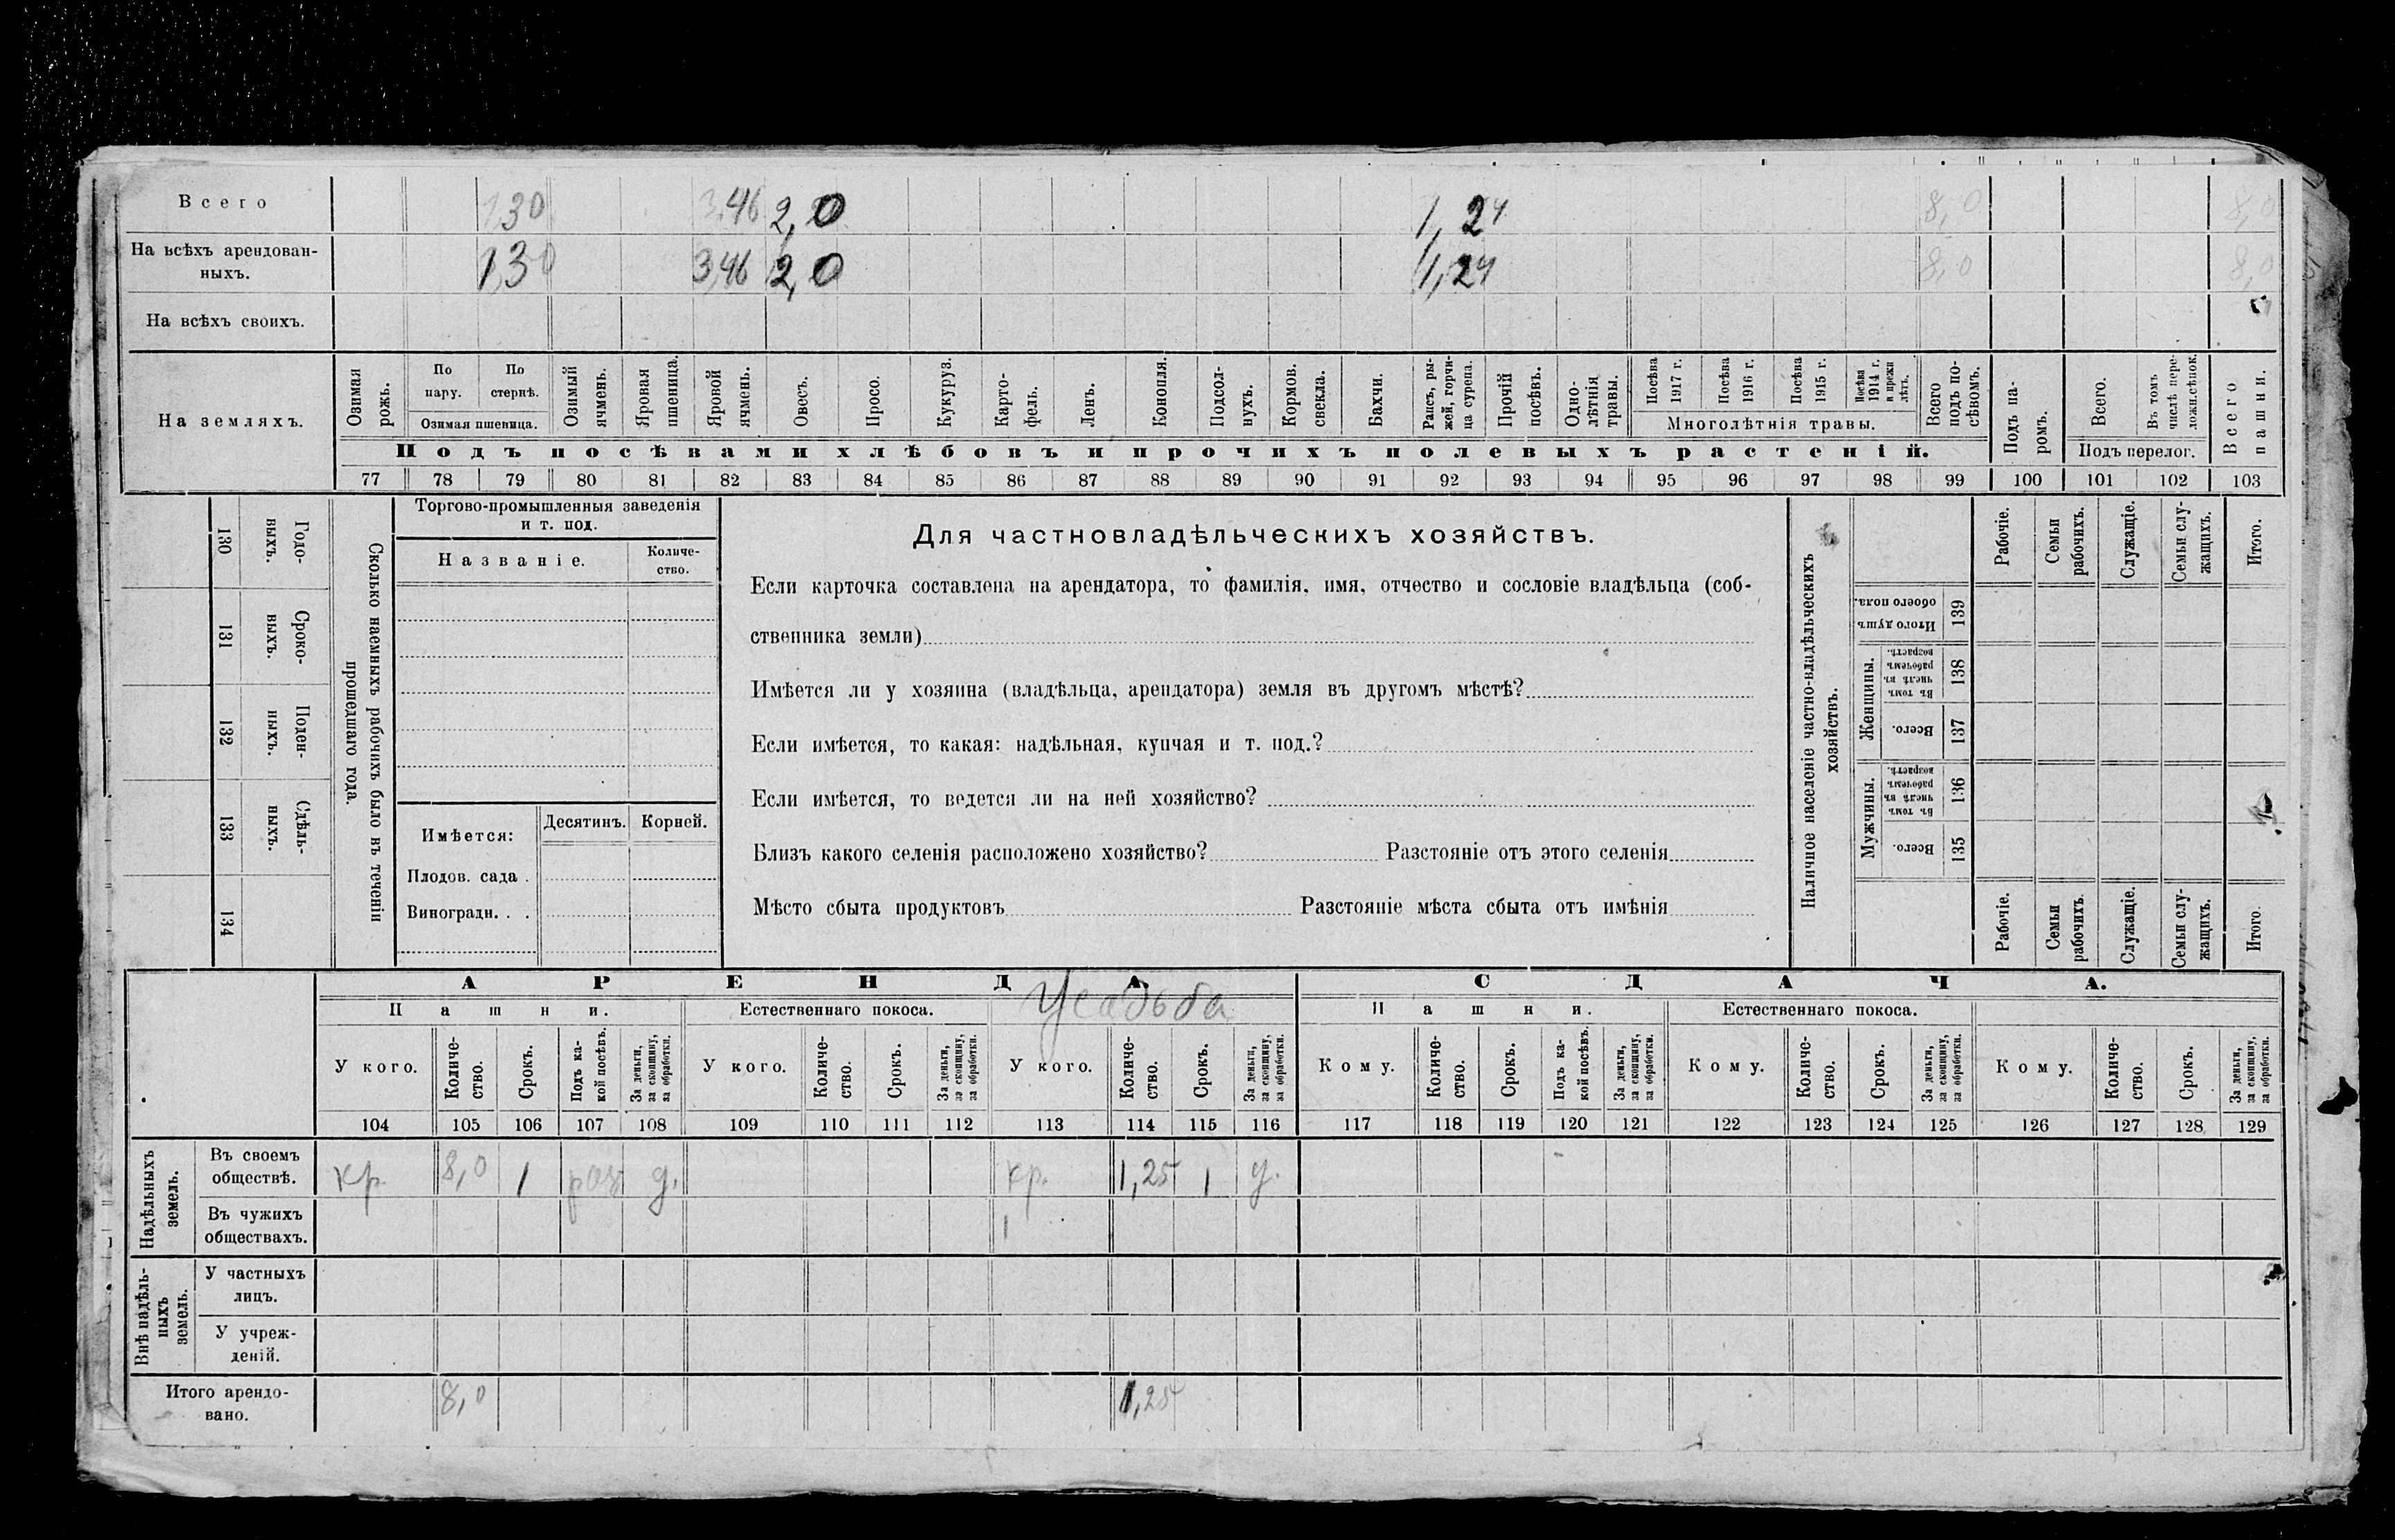 Всего 1,30 3,46 2,0 1,24 8,0 8,0
На всѣхъ арендован-
ныхъ. 1,30 3,46 2,0 1,24 8,0 8,0
На всѣхъ своихъ.
На земляхъ.
Озимая рожь.
По пару.
По стернѣ.
Озимая пшеница.
Озимый ячмень.
Яровая пшеница.
Яровой ячмень.
Овесъ.
Просо.
Кукуруз.
Карто-
фель.
Ленъ.
Конопля.
Подсол-
нухъ.
Кормов.
свекла.
Бахчи.
Рапсъ, ры-
жей, горчи-
ца сурепа.
Прочій
посѣвъ.
Одно-
лѣтнія
травы.
Посѣва
1917 г.
Посѣва
1916 г.
Посѣва
1915 г.
Посѣва
1914 г.
и прежн
лѣтъ.
Многолѣтнія травы.
Всего
подъ по-
сѣвомъ.
Подъ па-
ромъ.
Всего.
Въ томъ
числѣ пере-
ложн.сѣнок.
Подъ перелог.
Всего
пашни.
Подъ посѣвами хлѣбовъ и прочихъ полевыхъ растеній.
77 78 79 80 81 82 83 84 85 86 87 88 89 90 91 92 93 94 95 96 97 98 99 100 101 102 103
Сколько наемныхъ рабочихъ было въ теченіи
прошедшаго года.
Годо-
выхъ.
130
Сроко-
ныхъ.
131
Поден-
ныхъ.
132
Сдѣль-
ныхъ.
133
134
Торгово-промышленныя заведенія
и т. под.
Названіе.
Количе-
ство.
Имѣется:
Десятинъ. Корней.
Плодов. сада .
Виноградн. . .
Для частновладѣльческихъ хозяйствъ.
Если карточка составлена на арендатора, то фамилія, имя, отчество и сословіе владѣльца (соб-
ственника земли)
Имѣется ли у хозяина (владѣльца, арендатора) земля въ другомъ мѣстѣ?
Если имѣется, то какая: надѣльная, купчая и т. под.?
Если имѣется, то ведется ли на ней хозяйство?
Близъ какого селенія расположено хозяйство? Разстояніе отъ этого селенія
Мѣсто сбыта продуктовъ Разстояніе мѣста сбыта отъ имѣнія
Наличное населеніе частно-владѣльческихъ
хозяйствъ.
Рабочіе.
Семьи
рабочихъ.
Служащіе.
Семьи слу-
жащихъ.
Итого.
Итого душъ
обоего пола.
139
Женщины.
Въ томъ
числѣ въ
рабочемъ
возрастѣ.
138
Всего.
137
Мужчины.
Въ томъ
числѣ въ
рабочемъ
возрастѣ.
136
Всего.
135
Рабочіе.
Семьи
рабочихъ.
Служащіе.
Семьи слу-
жащихъ.
Итого.
АРЕНДА. СДАЧА.
Пашни. Естественнаго покоса. Усадьба Пашни. Естественнаго покоса.
У кого.
Количе-
ство.
Срокъ.
Подъ ка-
кой посѣвъ.
За деньги,
за скопщину,
за обработки.
У кого.
Количе-
ство.
Срокъ.
За деньги,
за скопщину,
за обработки.
У кого.
Количе-
ство.
Срокъ.
За деньги,
за скопщину,
за обработки.
Кому.
Количе-
ство.
Срокъ.
Подъ ка-
кой посѣвъ.
За деньги,
за скопщину,
за обработки.
Кому.
Количе-
ство.
Срокъ.
За деньги,
за скопщину,
за обработки.
Кому.
Количе-
ство.
Срокъ.
За деньги,
за скопщину,
за обработки.
104 105 106 107 108 109 110 111 112 113 114 115 116 117 118 119 120 121 122 123 124 125 126 127 128 129
Надѣльныхъ
земель.
Въ своемъ
обществѣ. кр. 8,0 1 раз д. кр. 1,25 1 д.
Въ чужихъ
обществахъ.
Внѣ надѣль-
ныхъ
земель.
У частныхъ
лицъ.
У учреж-
деній.
Итого арендо-
вано. 8,0 1,25